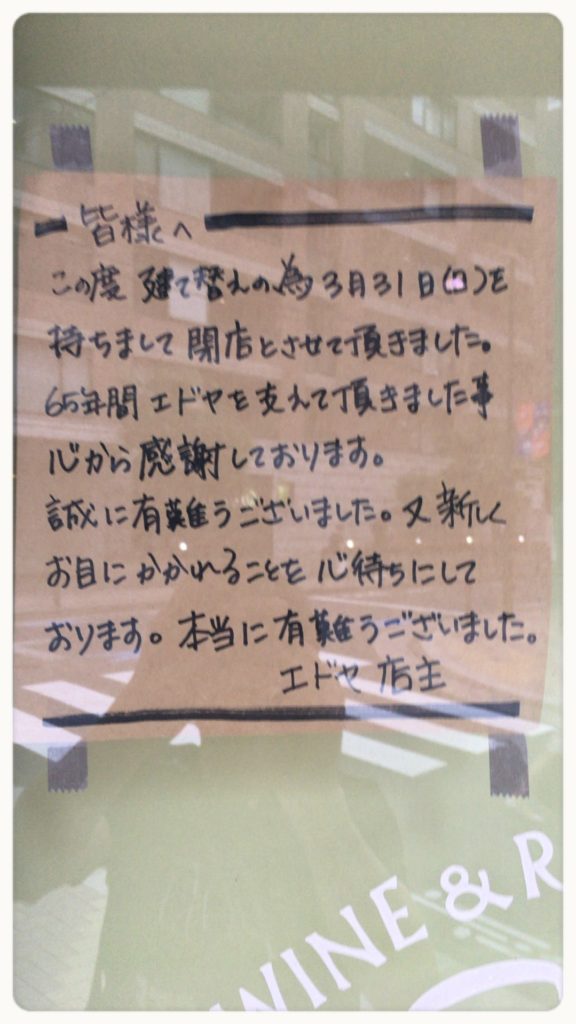 皆様へ
この度 建て替えの為 3月31日(日)を
持ちまして 閉店とさせて頂きました。
65年間 エドヤを支えて頂きました事
心から感謝しております。
誠に有難うございました。又新しく
お目にかかれることを心待ちにして
おります。本当に有難うございました。
エドヤ 店主
WINE & R